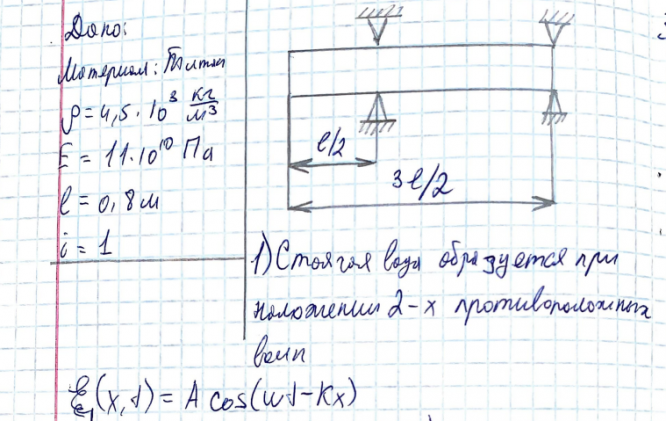 Дано:
Материал: Титан
ρ = 4,5 · 10³ кг/м³
E = 11·10¹⁰ Па
l = 0,8 м
i = 1
l/2
3l/2
1) Стоячая волна образуется при
наложении 2-х противоположных
волн
ξ₁(x,t) = A cos(ωt - Kx)